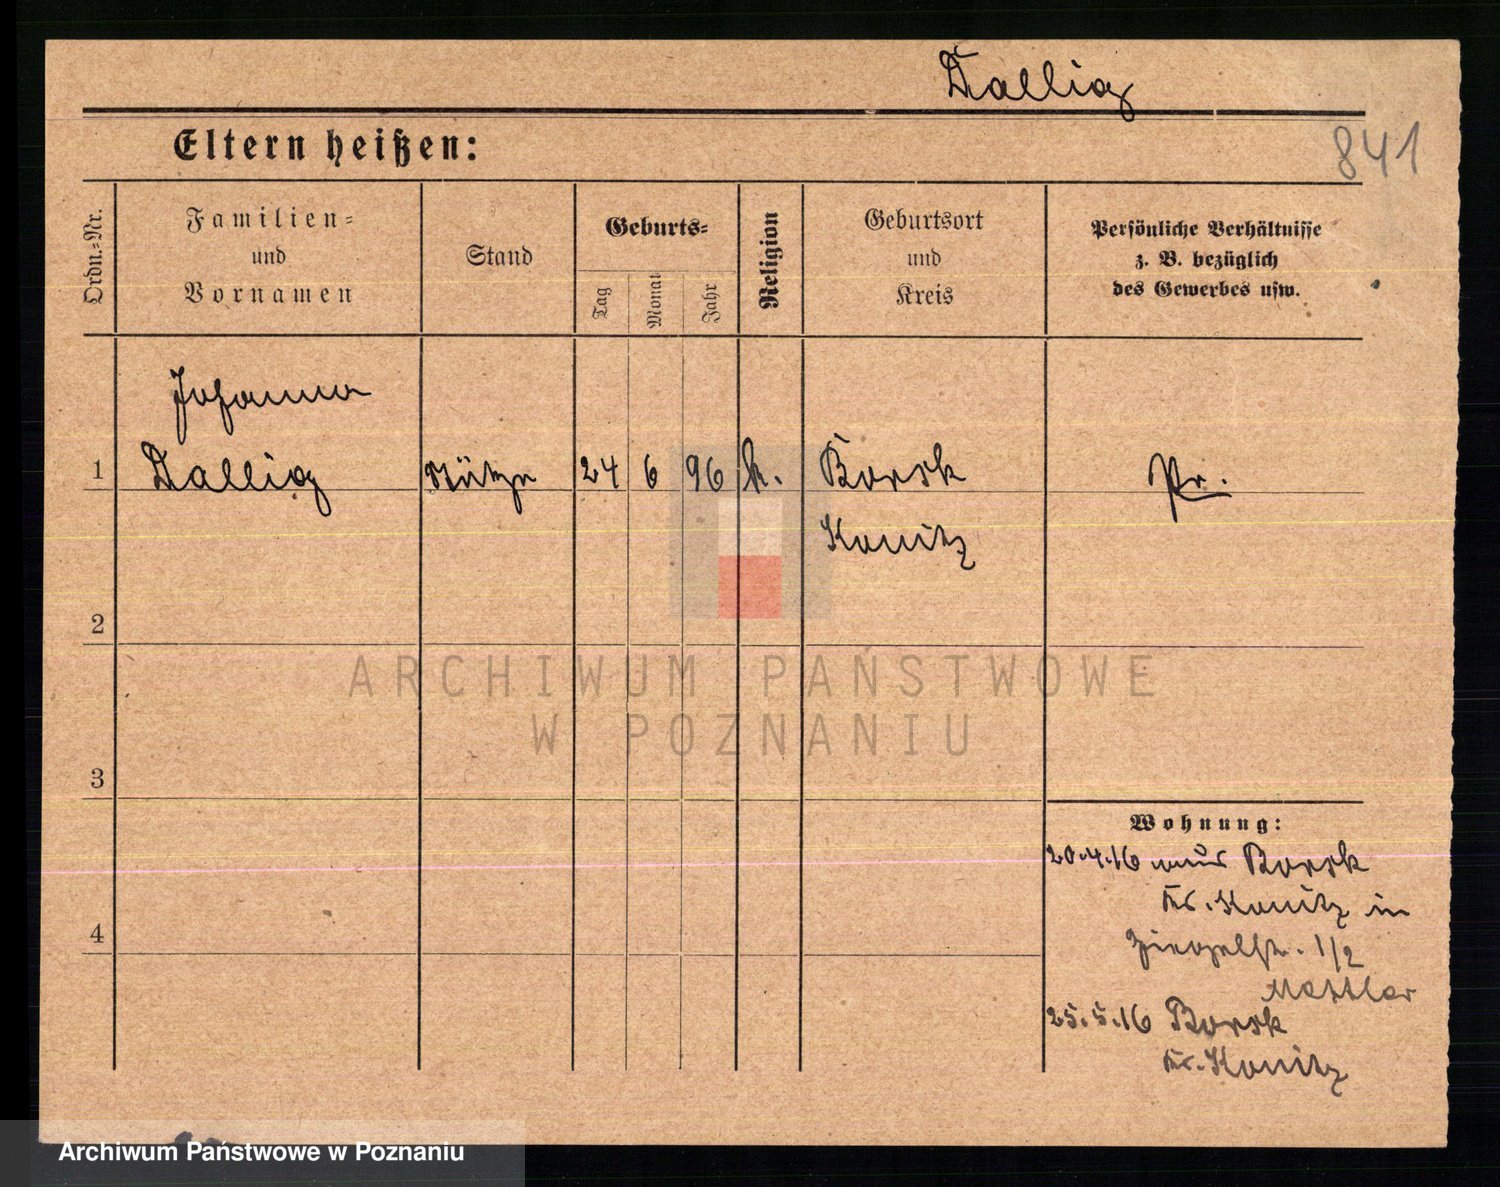 Dallig
841
Eltern heißen:
Ordn.-Nr.
Familien-
und
Vornamen
Stand
Geburts-
Tag
Monat
Jahr
Religion
Geburtsort
und
Kreis
Persönliche Verhältnisse
z. B. bezüglich
des Gewerbes usw.
Johanna
1 Dallig Stütze 24 6 96 k. Borsk Pr.
Konitz
2
3
4
Wohnung:
20.4.16 aus Borsk
Kr. Konitz in
Ziegelstr. 1/2
25.5.16 Borsk
Kr. Konitz
ARCHIWUM PAŃSTWOWE
W POZNANIU
Archiwum Państwowe w Poznaniu